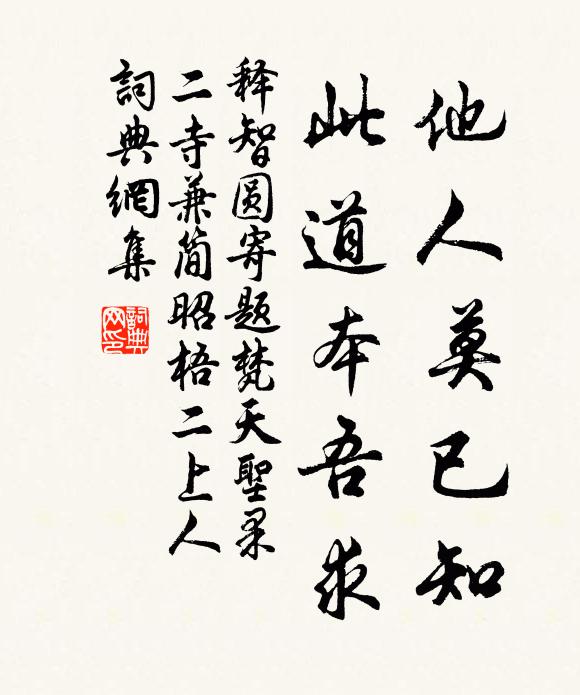 他人莫已知
此道本吾求
释智圆寄题梵天聖果
二寺兼简昭梧二上人
詞典網集
詞典网印